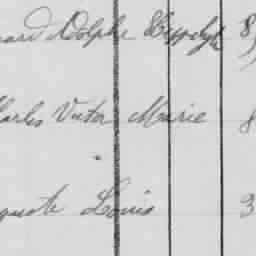 ard Adolphe Hippolyte 8
harles Victor Marie 8
guste Louis 3